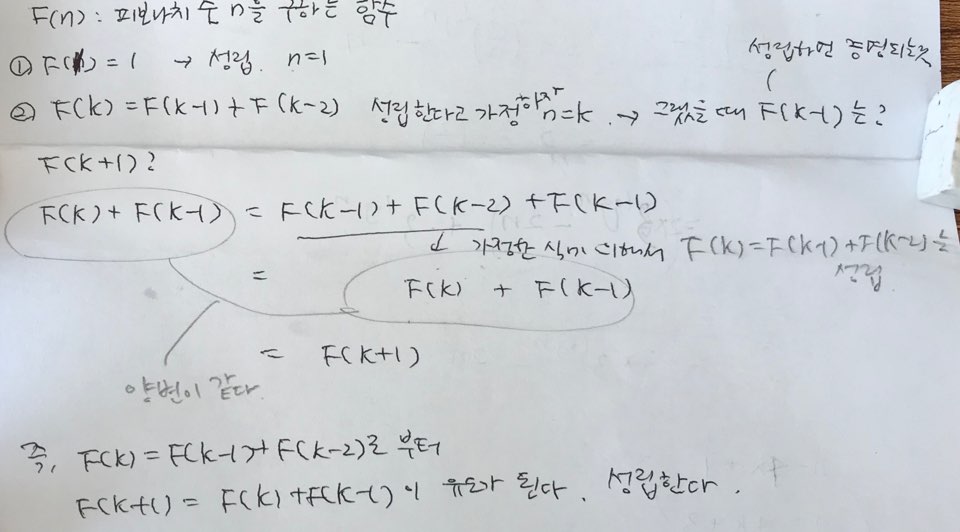 F(n) : 피보나치 수 n을 구하는 함수
① F(1) = 1 → 성립. n=1
성립하면 증명되는것
② F(k) = F(k-1) + F(k-2) 성립한다고 가정하자 n=k. → 그랬을때 F(k-1)는?
F(k+1)?
F(k) + F(k-1) = F(k-1) + F(k-2) + F(k-1)
↓ 가정한 식에 의해서 F(k) = F(k-1) + F(k-2)는 성립
= F(k) + F(k-1)
= F(k+1)
양변이 같다.
즉, F(k) = F(k-1) + F(k-2)로 부터
F(k+1) = F(k) + F(k-1)이 유도가 된다. 성립한다.